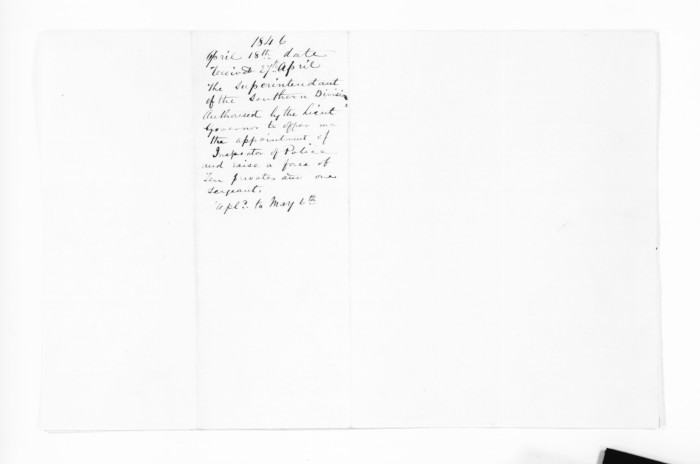 1846
April 18th date
Receivd 27th April
The Superintendant
of the Southern Division
Authorised by the Lieut
Governor to offer me
the appointment of
Inspector of Police
and raise a force of
Ten privates and one
Sergeant.
to May 6th